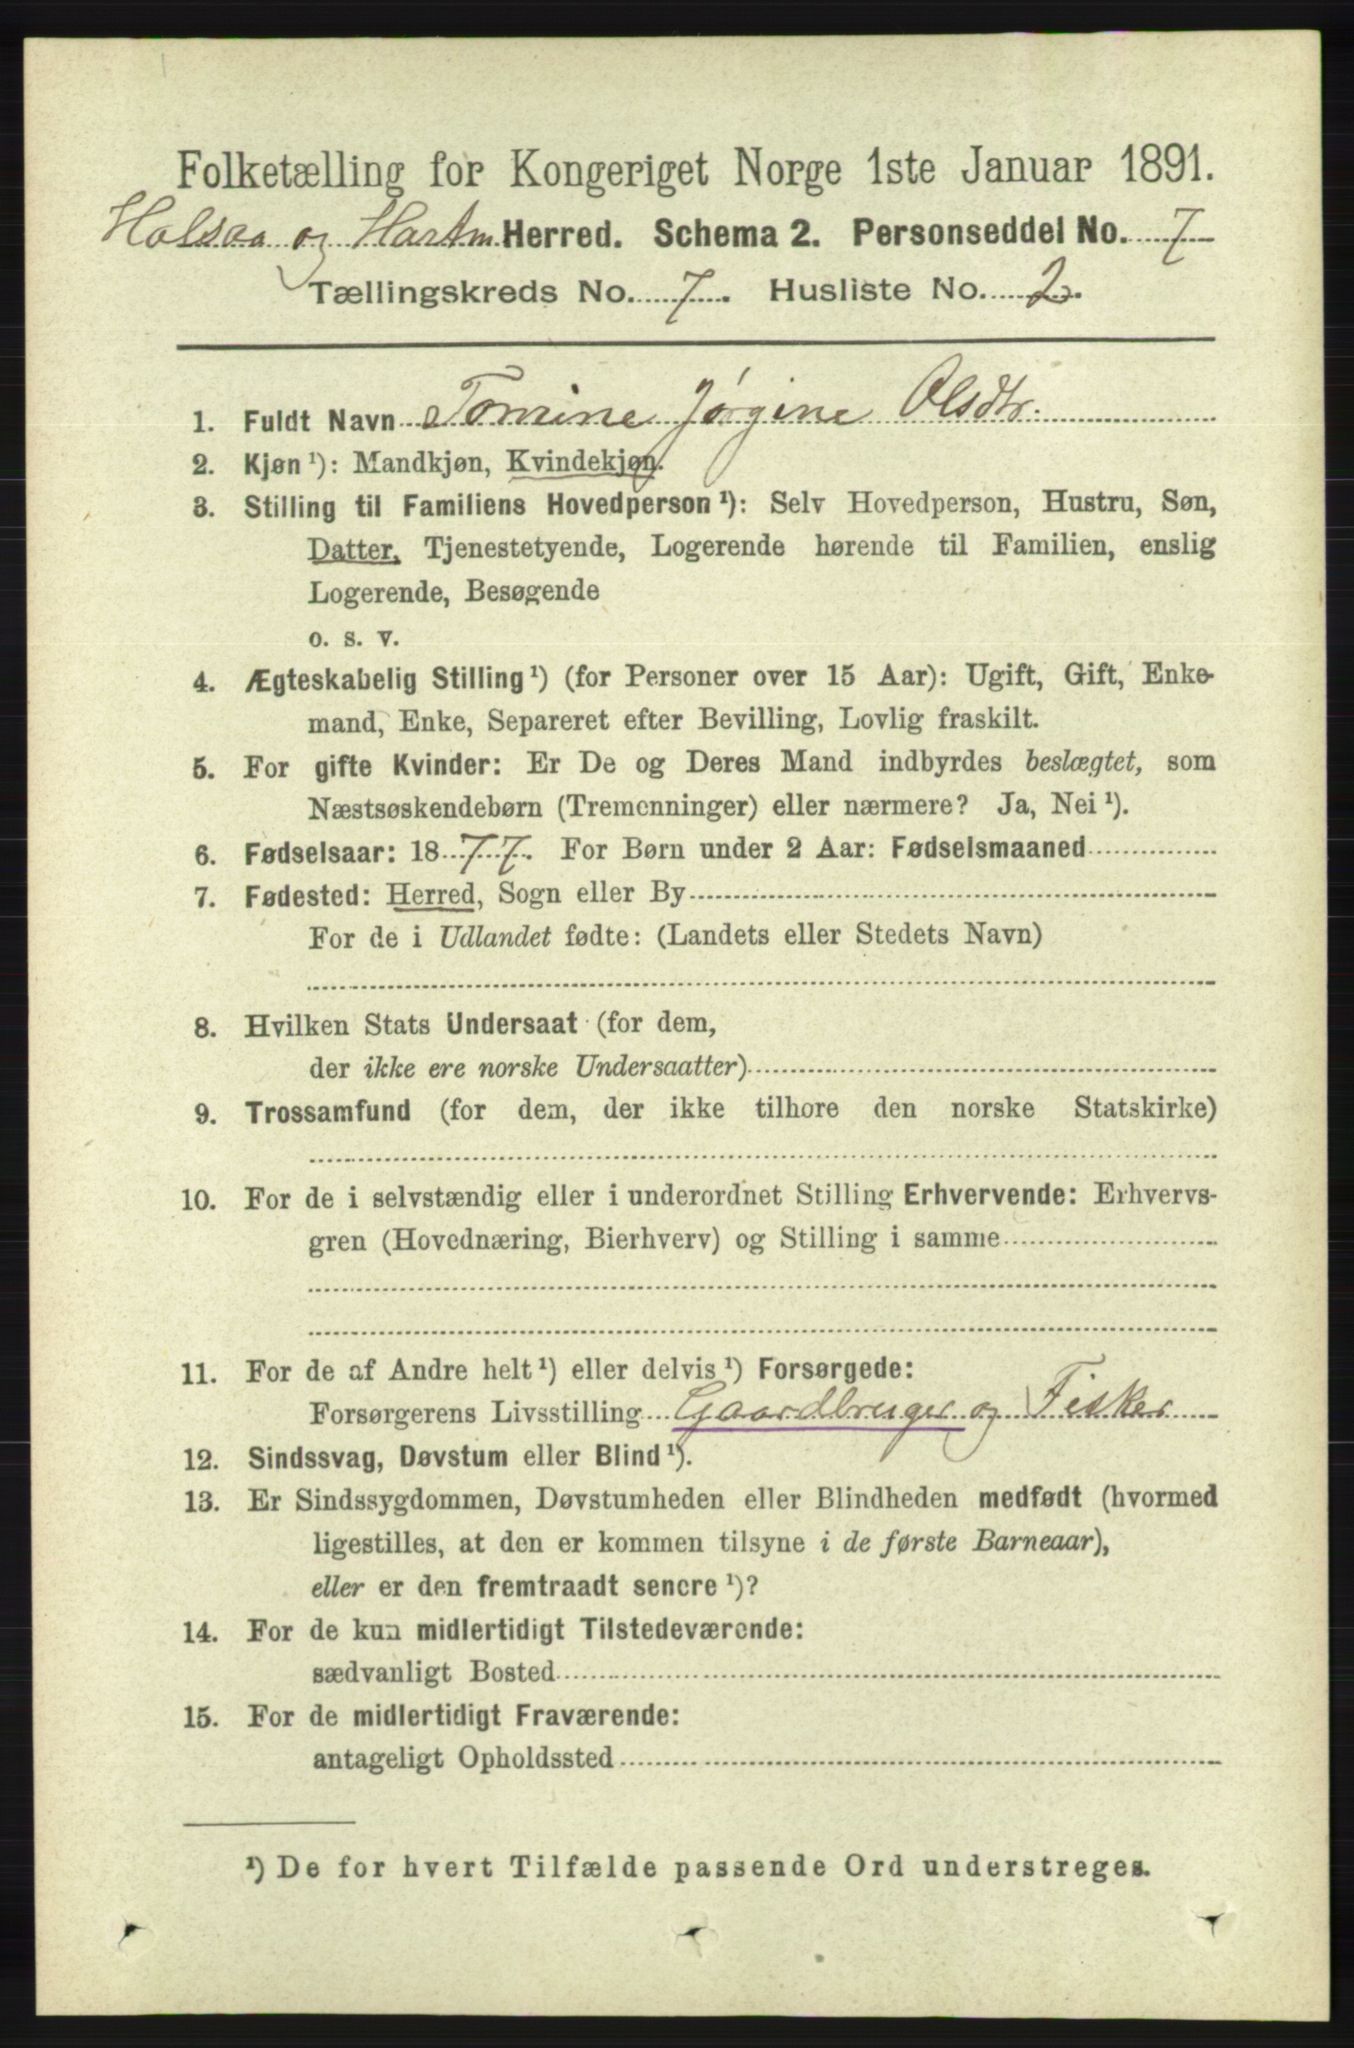 Folketælling for Kongeriget Norge 1ste Januar 1891.
Halsaa og Hartm Herred. Schema 2. Personseddel No. 7
Tællingskreds No. 7. Husliste No. 2.
1. Fuldt Navn Tomine Jørgine Olsdtr.
2. Kjøn ¹): Mandkjøn, Kvindekjøn.
3. Stilling til Familiens Hovedperson ¹): Selv Hovedperson, Hustru, Søn,
Datter, Tjenestetyende, Logerende hørende til Familien, enslig
Logerende, Besøgende
o. s. v.
4. Ægteskabelig Stilling ¹) (for Personer over 15 Aar): Ugift, Gift, Enke-
mand, Enke, Separeret efter Bevilling, Lovlig fraskilt.
5. For gifte Kvinder: Er De og Deres Mand indbyrdes beslægtet, som
Næstsøskendebørn (Tremenninger) eller nærmere? Ja, Nei ¹).
6. Fødselsaar: 1877. For Børn under 2 Aar: Fødselsmaaned
7. Fødested: Herred, Sogn eller By
For de i Udlandet fødte: (Landets eller Stedets Navn)
8. Hvilken Stats Undersaat (for dem,
der ikke ere norske Undersaatter)
9. Trossamfund (for dem, der ikke tilhøre den norske Statskirke)
10. For de i selvstændig eller i underordnet Stilling Erhvervende: Erhvervs-
gren (Hovednæring, Bierhverv) og Stilling i samme
11. For de af Andre helt ¹) eller delvis ¹) Forsørgede:
Forsørgerens Livsstilling Gaardbruger og Fisker
12. Sindssvag, Døvstum eller Blind ¹).
13. Er Sindssygdommen, Døvstumheden eller Blindheden medfødt (hvormed
ligestilles, at den er kommen tilsyne i de første Barneaar),
eller er den fremtraadt senere ¹)?
14. For de kun midlertidigt Tilstedeværende:
sædvanligt Bosted
15. For de midlertidigt Fraværende:
antageligt Opholdssted
¹) De for hvert Tilfælde passende Ord understreges.